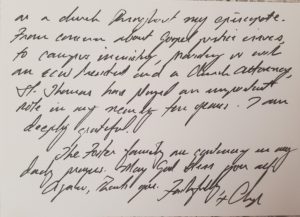 as a church throughout my episcopate.
From concern about Gospel justice issues,
to campus ministry, providing us with
an ECW President and a Church Attorney,
St. Thomas has played an important
role in my nearly ten years. I am
deeply grateful.
The Foster family are continuing in my
daily prayers. May God bless you all
Again, thank you. Faithfully